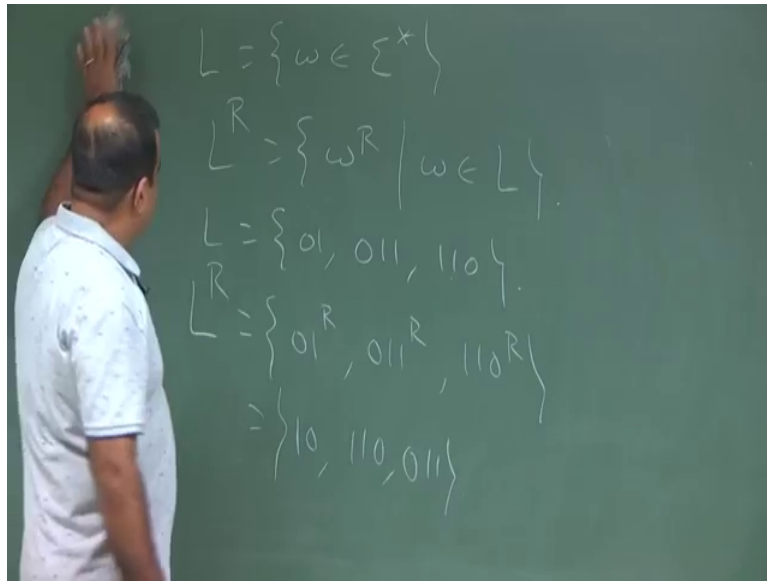 L = {ω ∈ Σ*}
L^R = {ω^R | ω ∈ L}.
L = {01, 011, 110}.
L^R = {01^R, 011^R, 110^R}
= {10, 110, 011}